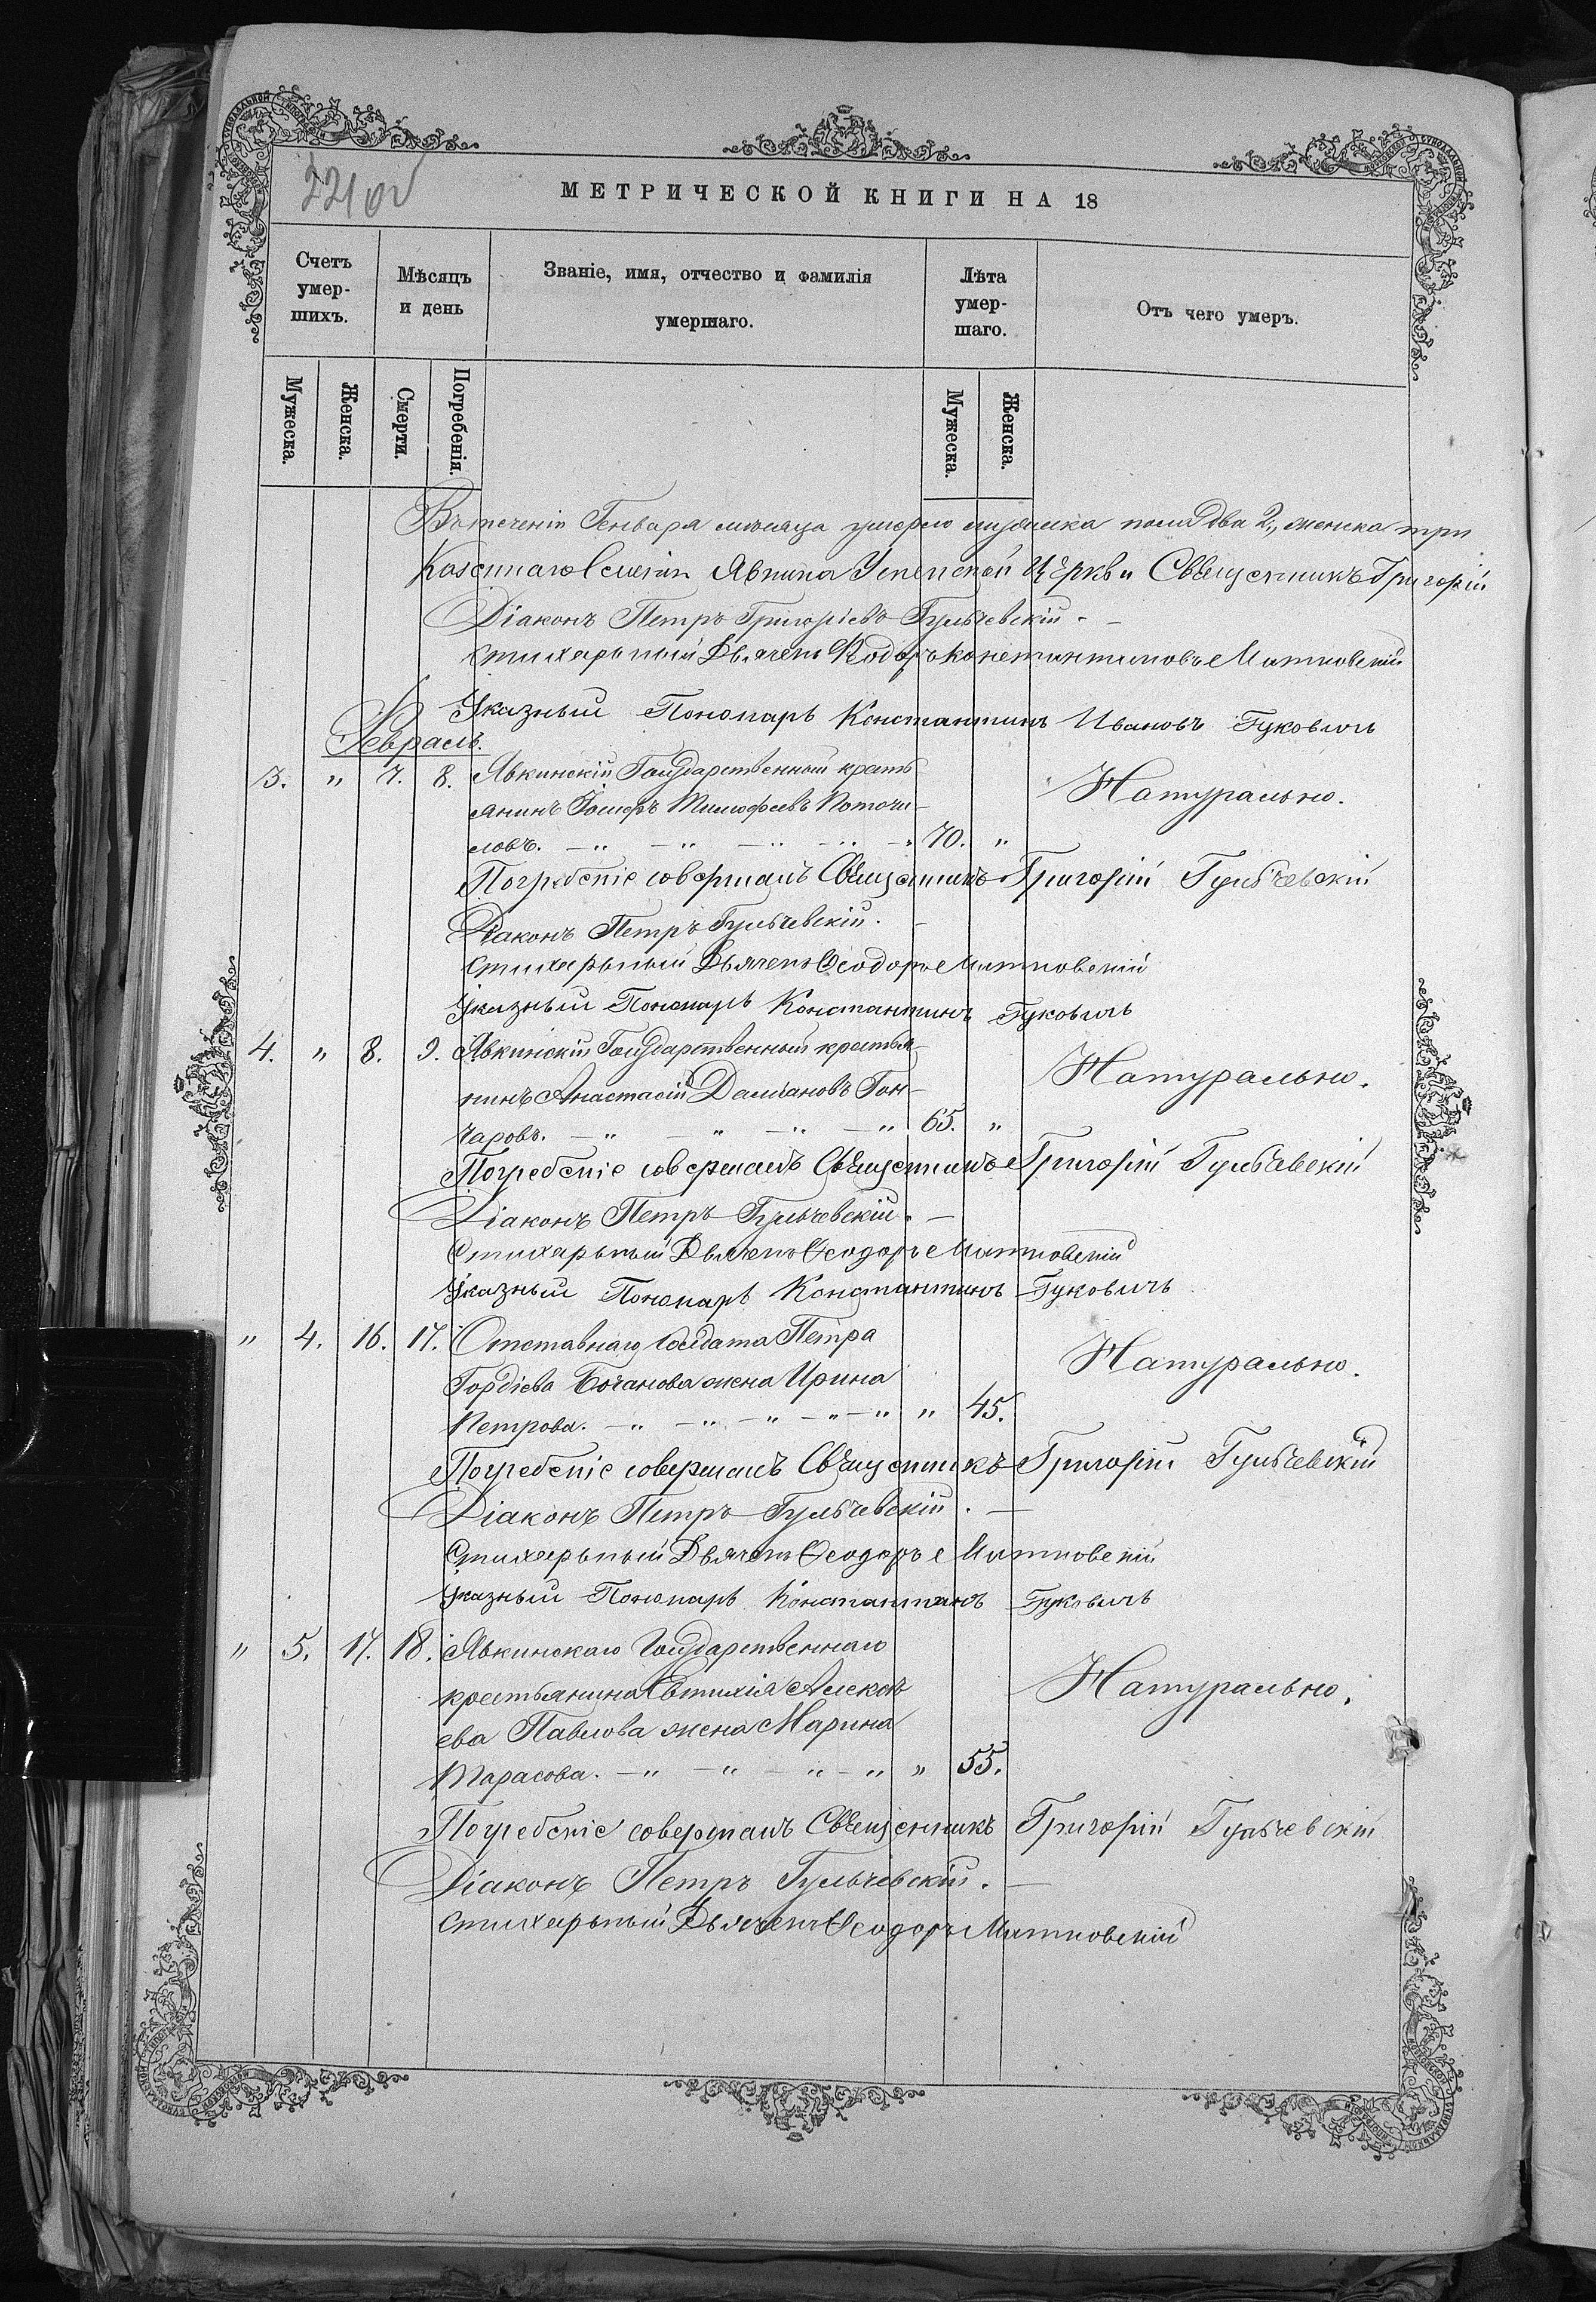 221 об
МЕТРИЧЕСКОЙ КНИГИ НА 18
Счетъ умер-шихъ.
Мѣсяцъ и день
Званіе, имя, отчество и фамилія умершаго.
Лѣта умер-шаго.
Отъ чего умеръ.
Мужеска.
Женска.
Смерти.
Погребенія.
Мужеска.
Женска.
Въ теченіи Генваря мѣсяца умерло мужеска пола два 2., женска три
Явкина Успенской Церкви Священникъ Григорій
Діаконъ Петръ Григоріевъ Гульчевскій. —
Стихарный Дьячекъ Ѳеодоръ Константиновъ Митковскій
Указный Пономарь Константинъ Ивановъ Гуковичъ
Февраль.
3. " 7. 8. Явкинскій Государственный кресть-
янинъ Іосифъ Тимофеевъ Поточи-
ловъ. — " — " — " — " — " 70. "
Натурально.
Погребеніе совершалъ Священникъ Григорій Гульчевскій
Діаконъ Петръ Гульчевскій. —
Стихарный Дьячекъ Ѳеодоръ Митковскій
Указный Пономарь Константинъ Гуковичъ
4. " 8. 9. Явкинскій Государственный крестья-
нинъ Анастасій Даміановъ Гон-
чаровъ. — " — " — " — " 65. "
Натурально.
Погребеніе совершалъ Священникъ Григорій Гульчевскій
Діаконъ Петръ Гульчевскій. —
Стихарный Дьячекъ Ѳеодоръ Митковскій
Указный Пономарь Константинъ Гуковичъ
" 4. 16. 17. Отставнаго Солдата Петра
Гордіева Бочанова жена Ирина
Петрова. — " — " — " — " — " " 45.
Натурально.
Погребеніе совершалъ Священникъ Григорій Гульчевскій
Діаконъ Петръ Гульчевскій. —
Стихарный Дьячекъ Ѳеодоръ Митковскій
Указный Пономарь Константинъ Гуковичъ
" 5. 17. 18. Явкинскаго Государственнаго
крестьянина Евтихія Алексѣ
ева Павлова жена Марина
Тарасова. — " — " — " — " " 55.
Натурально.
Погребеніе совершалъ Священникъ Григорій Гульчевскій
Діаконъ Петръ Гульчевскій. —
Стихарный Дьячекъ Ѳеодоръ Митковскій